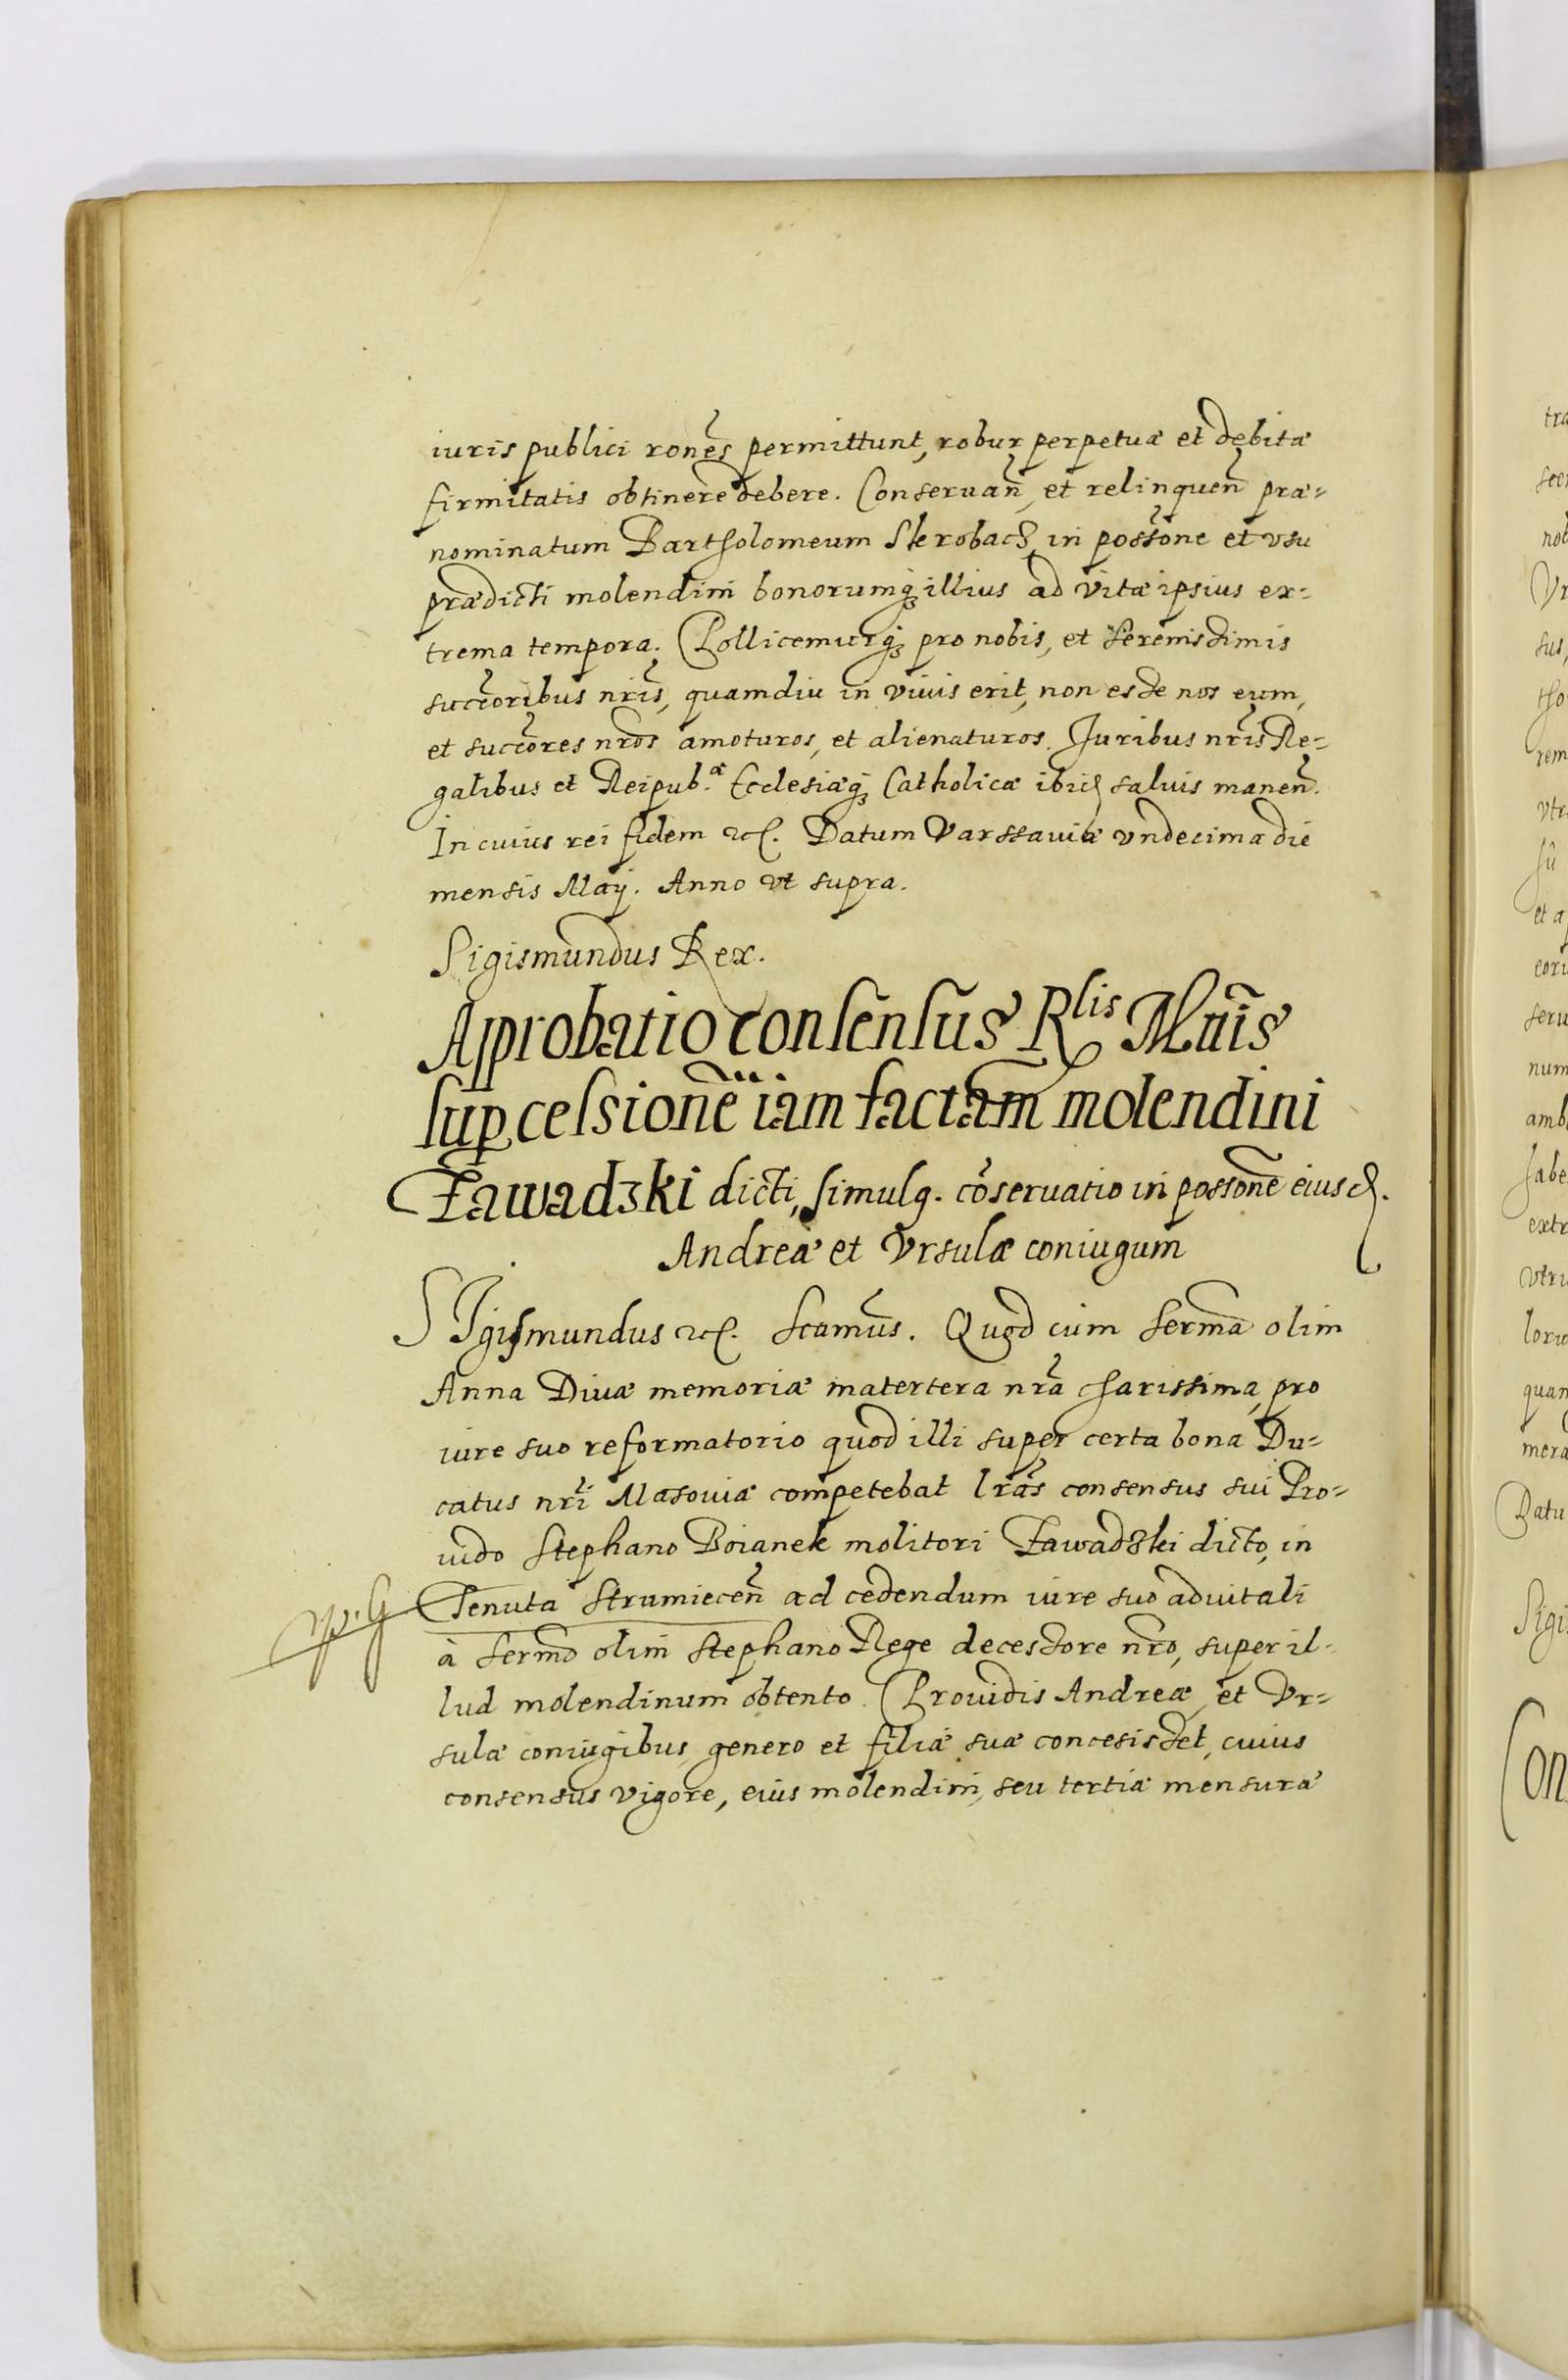 iuris publici rones permittunt, robur perpetuæ et debitæ
firmitatis obtinere debere. Conseruan̄, et relinquen̄ præ=
nominatum Bartholomeum Skrobach, in possone et vsu
prædicti molendini bonorumq́ illius ad vitæ ipsius ex=
trema tempora. Pollicemurq́ pro nobis, et Serenissimis
succoribus nris, quamdiu in viuis erit, non esse nos eum,
et succores nros amoturos, et alienaturos. Juribus nris Re=
galibus et Reipub.æ Ecclesiæq́ Catholicæ ibid saluis manen̄.
In cuius rei fidem etc. Datum Varssauiæ vndecima die
mensis Maij. Anno vt supra.
Sigismundus Rex.
Approbatio consensus Rlis Mtis
sup cessionē iam factam molendini
Zawadzki dicti, simulq. cōseruatio in possonē eiusd.
Andreæ et Vrsulæ coniugum
SIgismundus etc. Scamus. Quod cum Serma olim
Anna Diuæ memoriæ matertera nra charissima, pro
iure suo reformatorio quod illi super certa bona Du=
catus nri Masouiæ competebat lras consensus sui Pro=
uido Stephano Boianek molitori Zawadzki dicto, in
Tenuta Strumiecen̄ ad cedendum iure suo aduitali
à Sermo olim Stephano Rege decessore nro, super il=
lud molendinum obtento. Prouidis Andreæ, et Vr=
sulæ coniugibus, genero et filiæ suæ concesisset, cuius
consensus vigore, eius molendini, seu tertiæ mensuræ